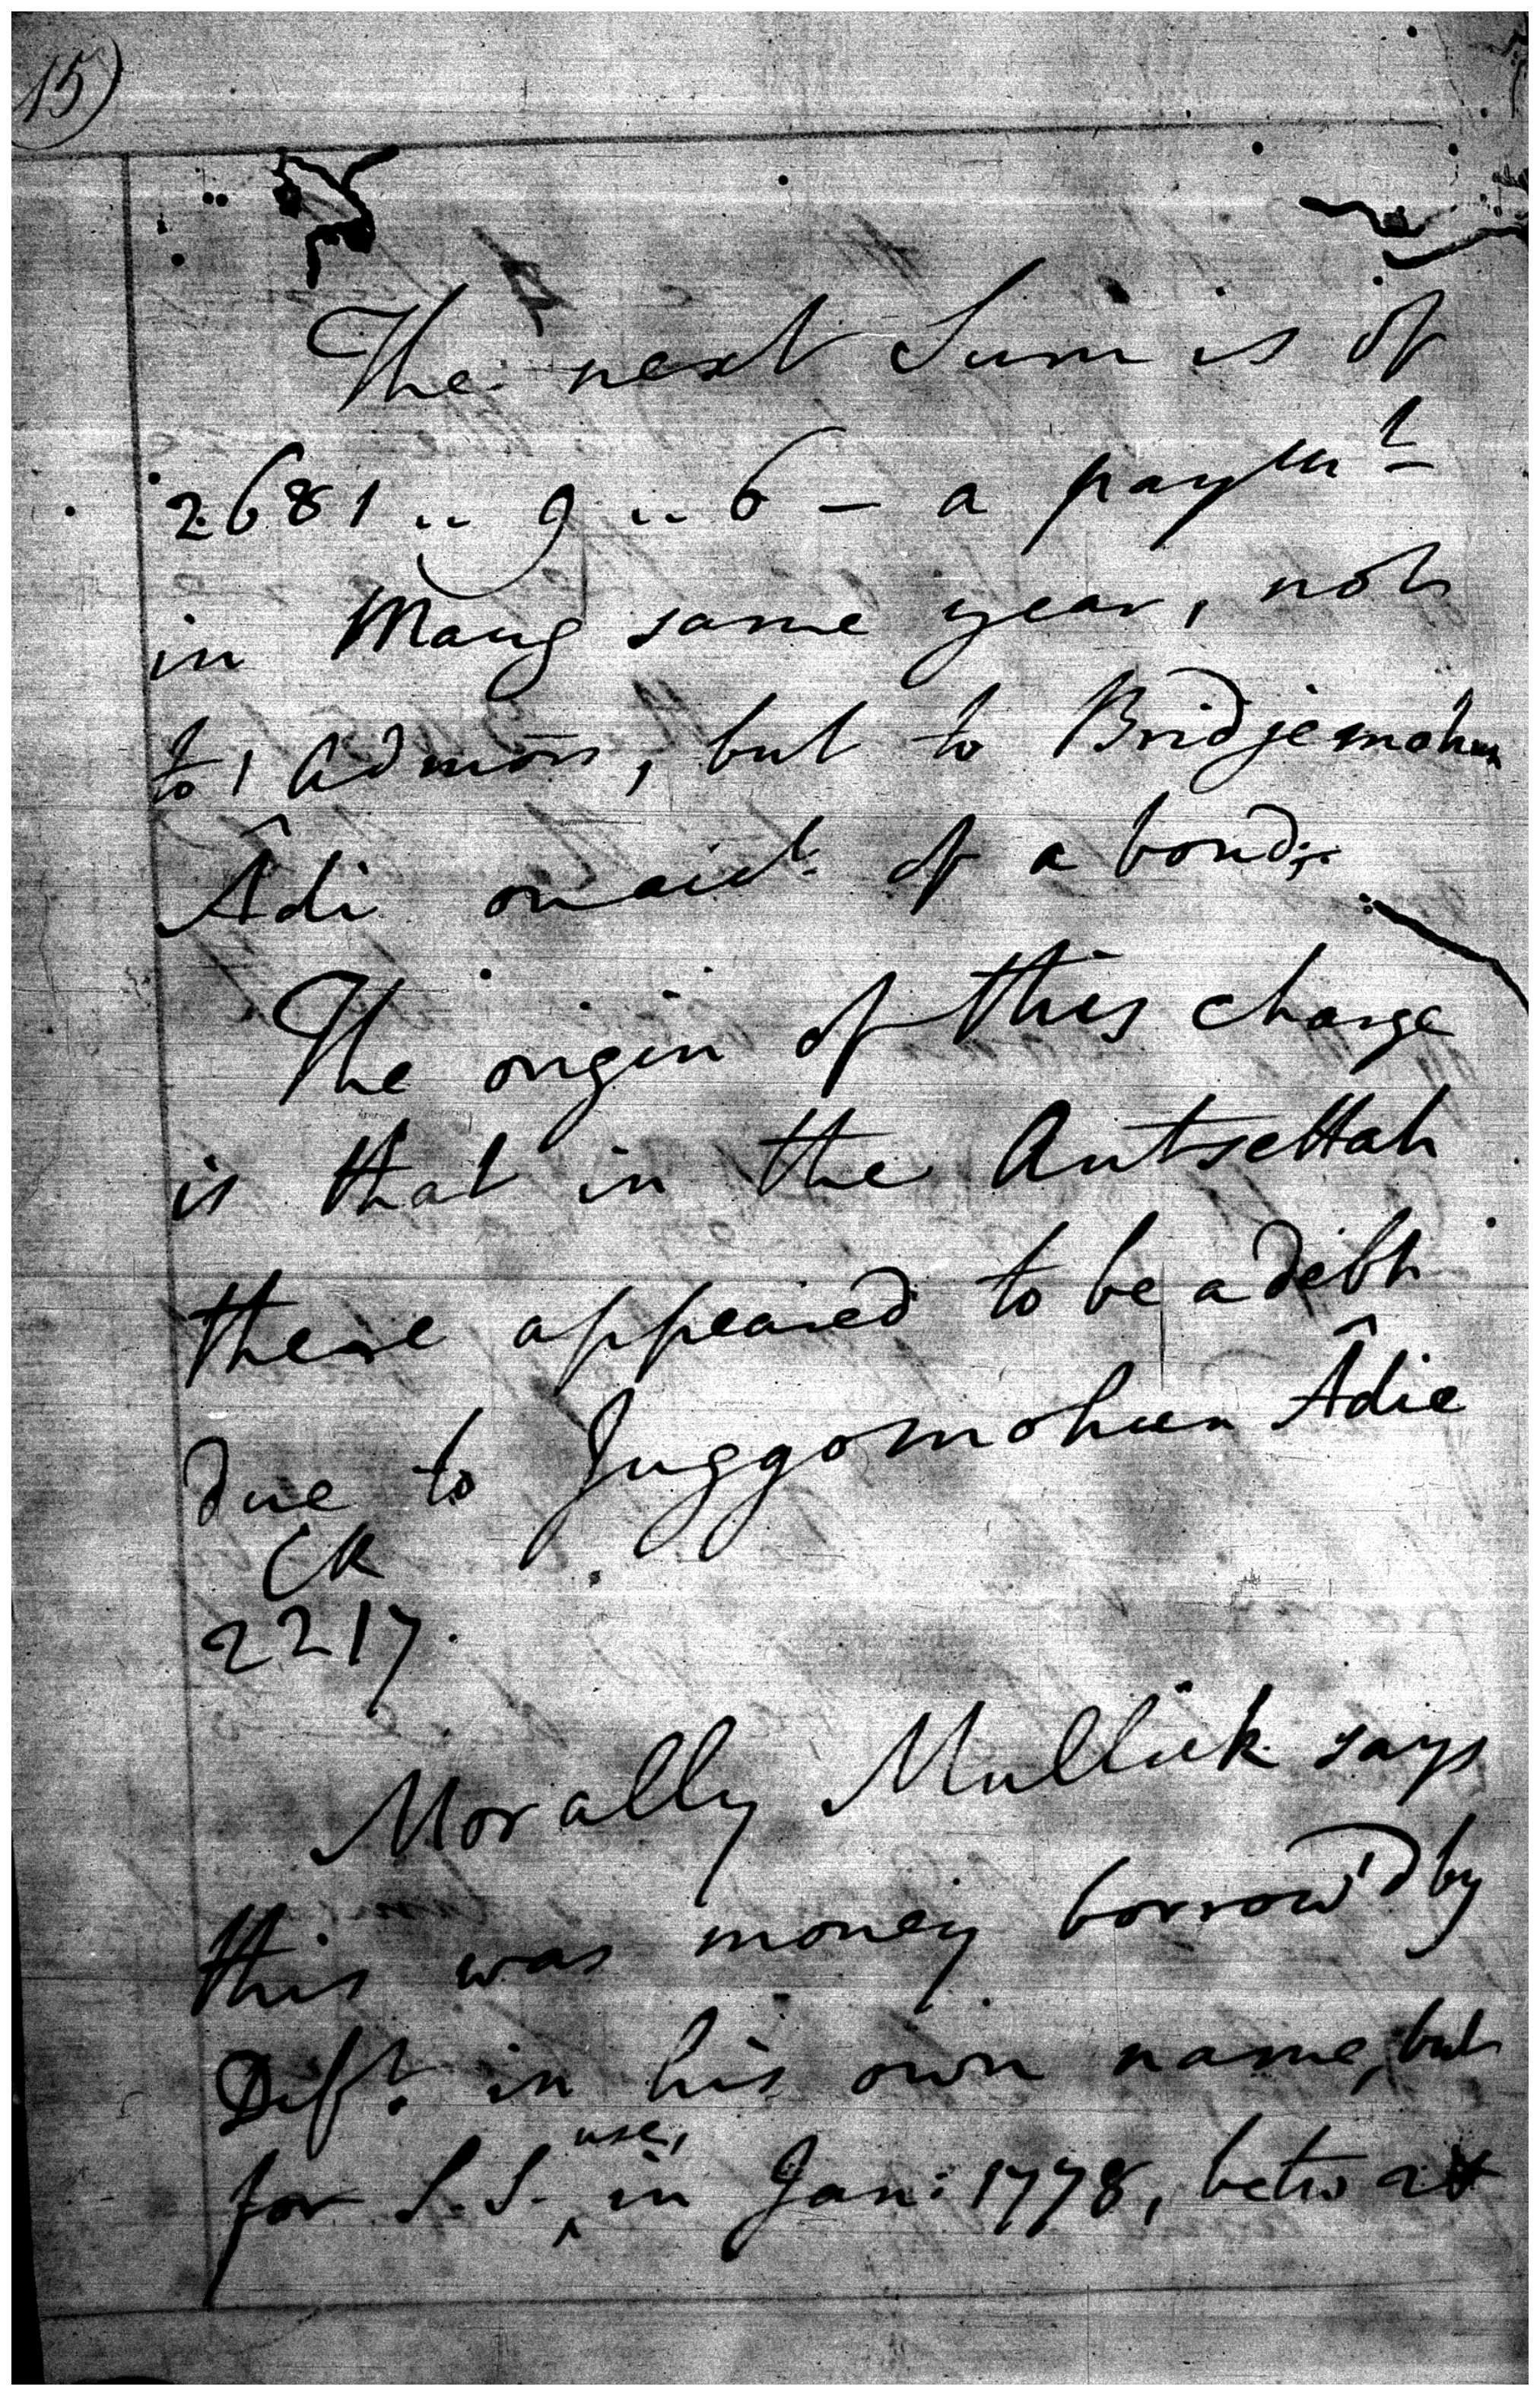 15)
The next Sum is of
2681 .. 9 .. 6 — a paymt
in Maug same year, not
to 1 Admors, but to Bridjemohun
Âdi on acct. of a bond;
The origin of this charge
is that in the Autsettah
there appeared to be a debt
due to Juggomohun Âdie
CR
2217.
Morally Mullick says
this was money borrow'd by
Deft. in his own name, but
for S.S. use, in Jan: 1778, betw